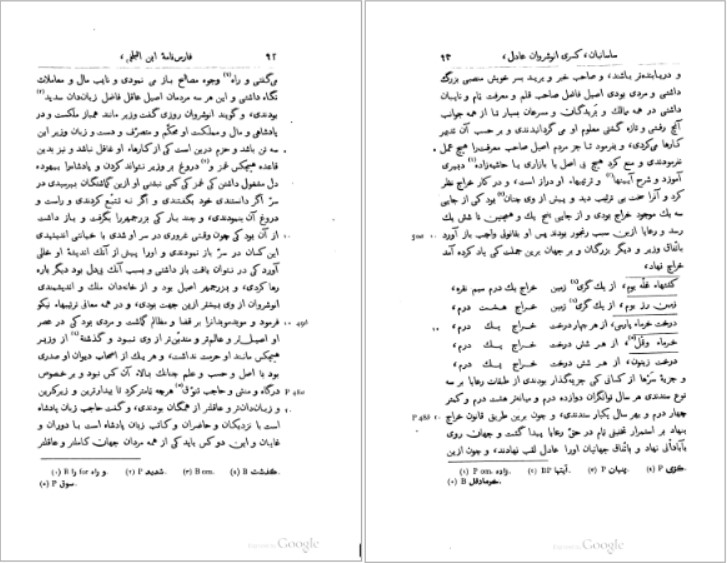 ۹۲ فارس‌نامهٔ ابن البلخی،
می‌گفتی و راه(۱) وجوه مصالح باز می نمودی و نایب مال و معاملات
نگاه داشتی و این هر سه مردمان اصیل عاقل فاضل زبان‌دان سدید(۲)
بودندی، و گویند انوشروان روزی گفت وزیر مانند همباز ملکست و در
پادشاهی و مال و مملکت او محکّم و متصرّف و دست و زبان وزیر این
سه تن باشد و حزم درین است کی از کارهاء او غافل نباشد و نیز بدین
قاعده هیچکس غمز و(۳) دروغ بر وزیر نتواند کردن و پادشاه‌را بیهوده
دل مشغول داشتن کی غمز کی کسی نبشتی او ازین گماشتگان بپرسیدی در
سرّ اگر دانستندی خود بگفتندی و اگر نه تتبّع کردندی و راست و
دروغ آن بنمودندی، و چند بار کی بزرجمهررا بگرفت و باز داشت
۱۰ از آن بود کی چون وقتی غروری در سر او شدی یا خیانتی اندیشیدی
این کسان در سرّ باز نمودندی و اورا پیش از آنک اندیشهٔ او خللی
آورد کی در نتوان یافت باز داشتی و بسبب آنک بی‌بدل بود دیگر باره
رها کردی، و بزرجمهر اصیل بود و از خانه‌دان ملک و اندیشمندی
انوشروان از وی بیشتر ازین جهت بودی، و در همه معانی ترتیبهاء نیکو
فرمود و موبدموبدان‌را بر قضا و مظالم گماشت و مردی بود کی در عصر
او اصیل‌تر و عالم‌تر و متدیّن‌تر از وی نبود و گذشتهٔ(۴) از وزیر
هیچکس مانند او حرمت نداشت، و هر یک از اصحاب دیوان او صدری
بود با اصل و حسب و علم چنانک بالاء آن کس نبود و بر خصوص
درگاه و منشی و حاجب تنوّق(۵) هرچه تمام‌تر کرد تا بیدارترین و زیرکترین P 48a
۲۰ و زبان‌دان‌تر و عاقلتر از همگان بودندی، و گفت حاجب زبان پادشاه
است با نزدیکان و حاضران و کاتب زبان پادشاه است با دوران و
غایبان و این دو کس باید کی از همه مردان جهان کاملتر و عاقلتر
(۱) B را for و راه. (۲) P شدید. (۳) B om. (۴) B گذشت.
(۵) P سوق.
Digitized by Google
ساسانیان، کسری انوشروان عادل، ۹۳
و دریابنده‌تر باشند، و صاحب خبر و برید بسر خویش منصبی بزرگ
داشتی و مردی بودی اصیل فاضل صاحب قلم و معرفت تام و نایبان
داشتی در همه ممالک و بریدگان و مسرعان بسیار تا از همه جوانب
آنچ رفتی و تازه گشتی معلوم او می گردانیدندی و بر حسب آن تدبیر
کارها می‌کردی، و بفرمود تا جز مردم اصیل صاحب معرفت‌را هیچ عمل
نفرمودندی و منع کرد هیچ بی اصل یا بازاری یا حاشیه‌زاده(۱) دبیری
آموزد و شرح آیینها(۲) و ترتیبهاء او دراز است، و در کار خراج نظر
کرد و آنرا سخت بی ترتیب دید و پیش از وی چنان(۳) بود کی از جایی
سه یک موجود خراج بودی و از جایی پنج یک و همچنین تا شش یک
رسد و رعایا ازین سبب رنجور بودند پس او بقانونی واجب باز آورد
باتّفاق وزیر و دیگر بزرگان و بر جهان برین جملت کی یاد کرده آمد
خراج نهاد،
کشتهاء غلّه بوم، از یک گری(۴) زمین خراج یک درم سیم نقره،
زمین رز بوم، از یک گری(۴) زمین خراج هشت درم،
درخت خرماء پارسی، از هر چهار درخت خراج یک درم،
خرماء وقل(۵)، از هر شش درخت خراج یک درم،
درخت زیتون، از هر شش درخت خراج یک درم،
و جزیهٔ سَرها از کسانی کی جزیه‌گذار بودندی از طبقات رعایا بر سه
نوع ستدندی هر سال توانگران دوازده درم و میانه‌تر هشت درم و کمتر
چهار درم و بهر سال یکبار ستدندی، و چون برین طریق قانون خراج P 48b
بنهاد بر استمرار تخفیفی تام در حقّ رعایا پیدا گشت و جهان روی
بآبادانی نهاد و باتّفاق جهانیان اورا عادل لقب نهادند، و چون ازین
(۱) P om. زاده. (۲) BP آیتها. (۳) P پنهان. (۴) P کزی.
(۵) B خرمادقل.
Digitized by Google